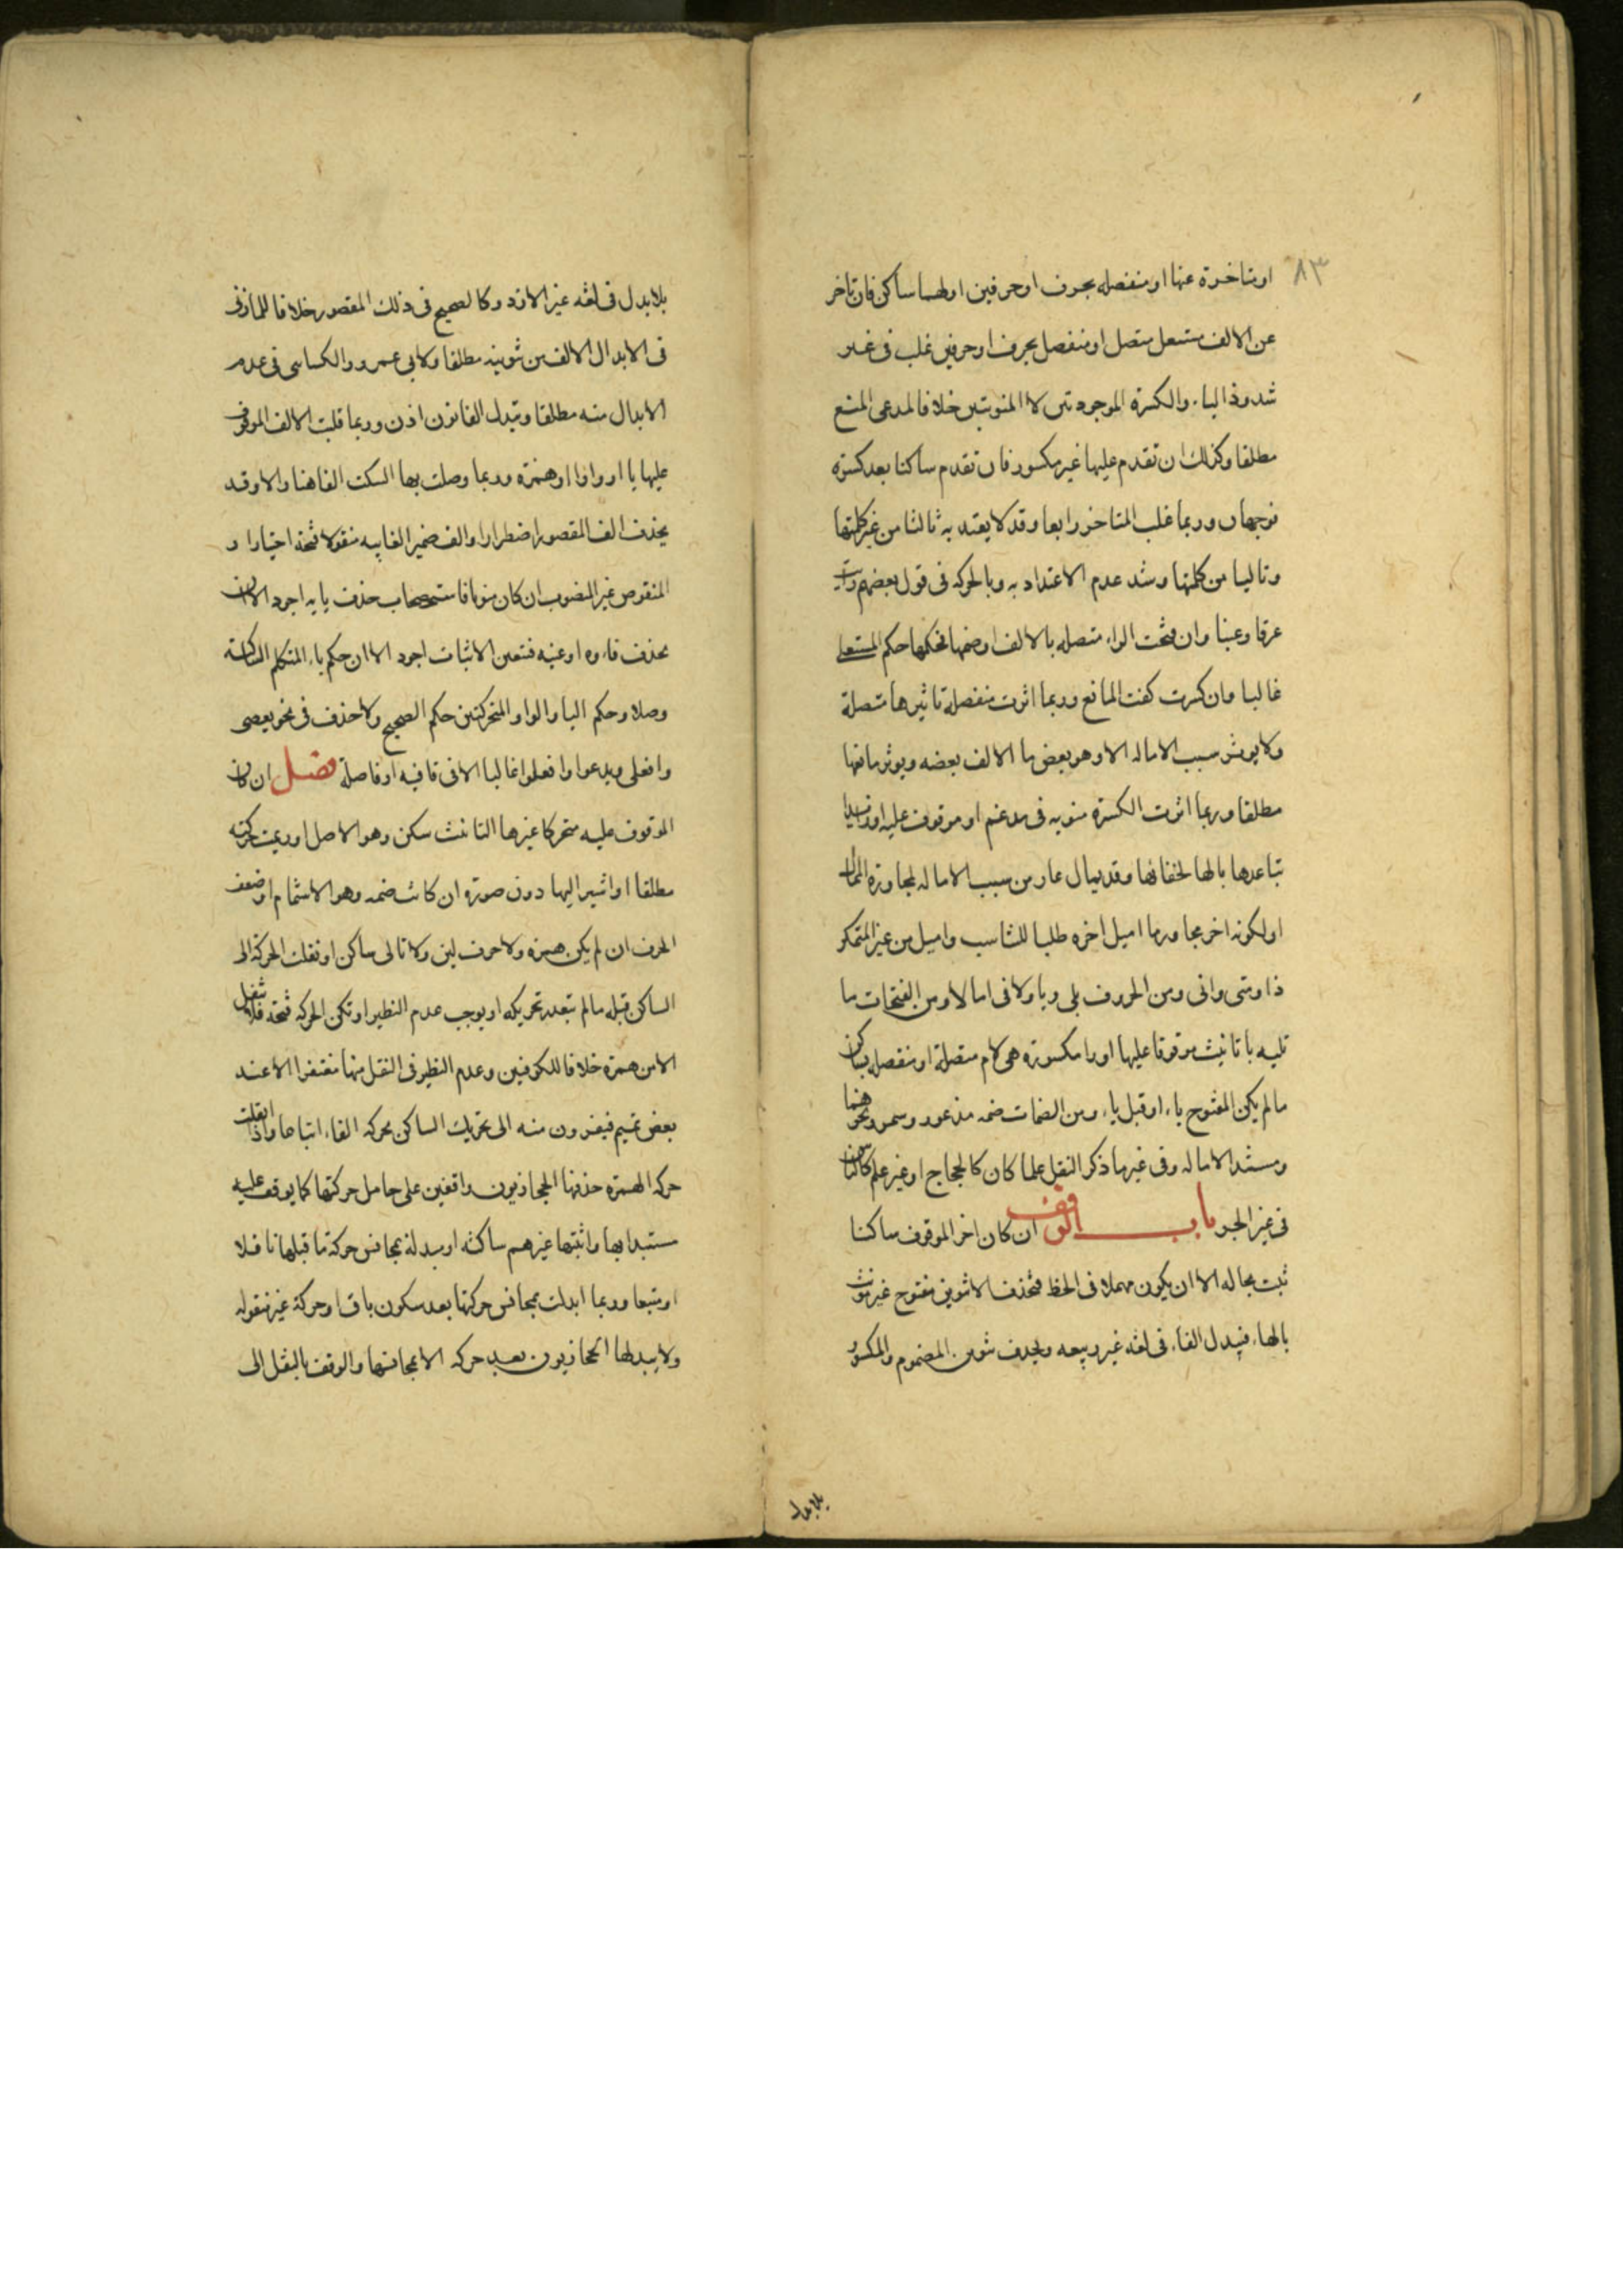 ٨٣
او متاخرة عنها او منفصله بحرف او حرفين اولهما ساكن فان تاخر
عن الالف مستعل متصل او منفصل بحرف او حرفين غلب فى غير
شذوذ الياء والكسرة الموجودتين لا المنويتين خلافا لمدعى المنع
مطلقا وكذلك ان تقدم عليها غير مكسور فان تقدم ساكنا بعد كسرة
فوجهان وربما غلب المتاخر رابعا وقد لا يعتد به ثالثا من غير كلمتها
وتاليا من كلمتها وشد عدم الاعتداد به وبالحركه فى قول بعضهم رايت
عرقا وعنبا وان فتحت الراء متصله بالالف او ضمها فحكمها حكم المستعلى
غالبا وان كسرت كفت المانع وربما اثرت منفصلة تاثيرها متصلة
ولا يوثر سبب الاماله الا وهو بعض ما الالف بعضه ويوثر مانعها
مطلقا وربما اثرت الكسرة منويه فى مدغم او موقوف عليه او
تباعدها بالها لخفائها وقد يمال عار من سبب الاماله لمجاورة الممال
او لكونه اخر مجاور ما اميل اخره طلبا للتناسب واميل من غير المتمكن
ذا ومتى وانى ومن الحروف بلى ويا ولا فى امالا ومن الفتحات ما
تليه يا تانيث موقوفا عليها او را مكسورة هى لام متصلة او منفصله بساكن
ما لم يكن المفتوح ياء او قبل ياء ومن الضمات ضمه مذعور وسمر ونحوهما
ومستند الاماله وفى غيرها ذكر النقل علما كان كالحجاج او غير علم كالناس
فى غير الجر باب الوقف ان كان اخر الموقوف ساكنا
ثبت بحاله الا ان يكون مهملا فى الخط فتحذف الا تنوين مفتوح غير مونث
بالهاء فيبدل الفاء فى لغه غير ربيعه ويحذف تنوين المضموم والمكسور
بلابدل
بلا بدل فى لغه غير الازد وكالصحيح فى ذلك المقصور خلافا للمازنى
فى الابدال الالف من تنوينه مطلقا ولابي عمرو والكسائى فى عدم
الابدال منه مطلقا وتبدل الفا نون اذن وربما قلبت الالف الموقوف
عليها يا او واوا او همزة وربما وصلت بها السكت الفا هنا والا وقد
يحذف الف المقصور اضطرارا والف ضمير الغايبه منقولا فتحه اختيارا و
المنقوص غير المنصوب ان كان منونا فاستصحاب حذف يايه اجود الا ان
بحذف فاءه او عينه فتعين الاثبات اجود الا ان حكم ياء المتكلم الساكنة
وصلا وحكم اليا والواو المتحركتين حكم الصحيح ولا حذف فى نحو يعصى
وافعلى ويدعوا وافعلوا غالبا الا فى قافيه او فاصلة فصل ان كان
الموقوف عليه متحركا غير ها التانيث سكن وهو الاصل او ريمت حركته
مطلقا او اشير اليها دون صوت ان كانت ضمه وهو الاشمام او ضعف
الحرف ان لم يكن همزه ولا حرف لين ولا تالى ساكن او نقلت الحركة الى
الساكن قبله ما لم يتعدر تحريكه او يوجب عدم النظير او تكن الحركه فتحة فلا تنقل
الا من همزة خلافا للكوفيين وعدم النظير فى النقل منها مغتفرا الا عند
بعض تميم فيفرون منه الى تحريك الساكن بحركه الفاء اتباعا واذا نقلت
حركه الهمزة حذفها الحجازيون واقفين على حامل حركتها كما يوقف عليه
مستبدا بها واثبتها غيرهم ساكنه او مبدلة بمجانس حركة ما قبلها ناقلا
او متبعا وربما ابدلت بمجانس حركتها بعد سكون باق او حركة غير منقوله
ولا يبدلها الحجازيون بعد حركه الا بمجانسها والوقف بالنقل الى